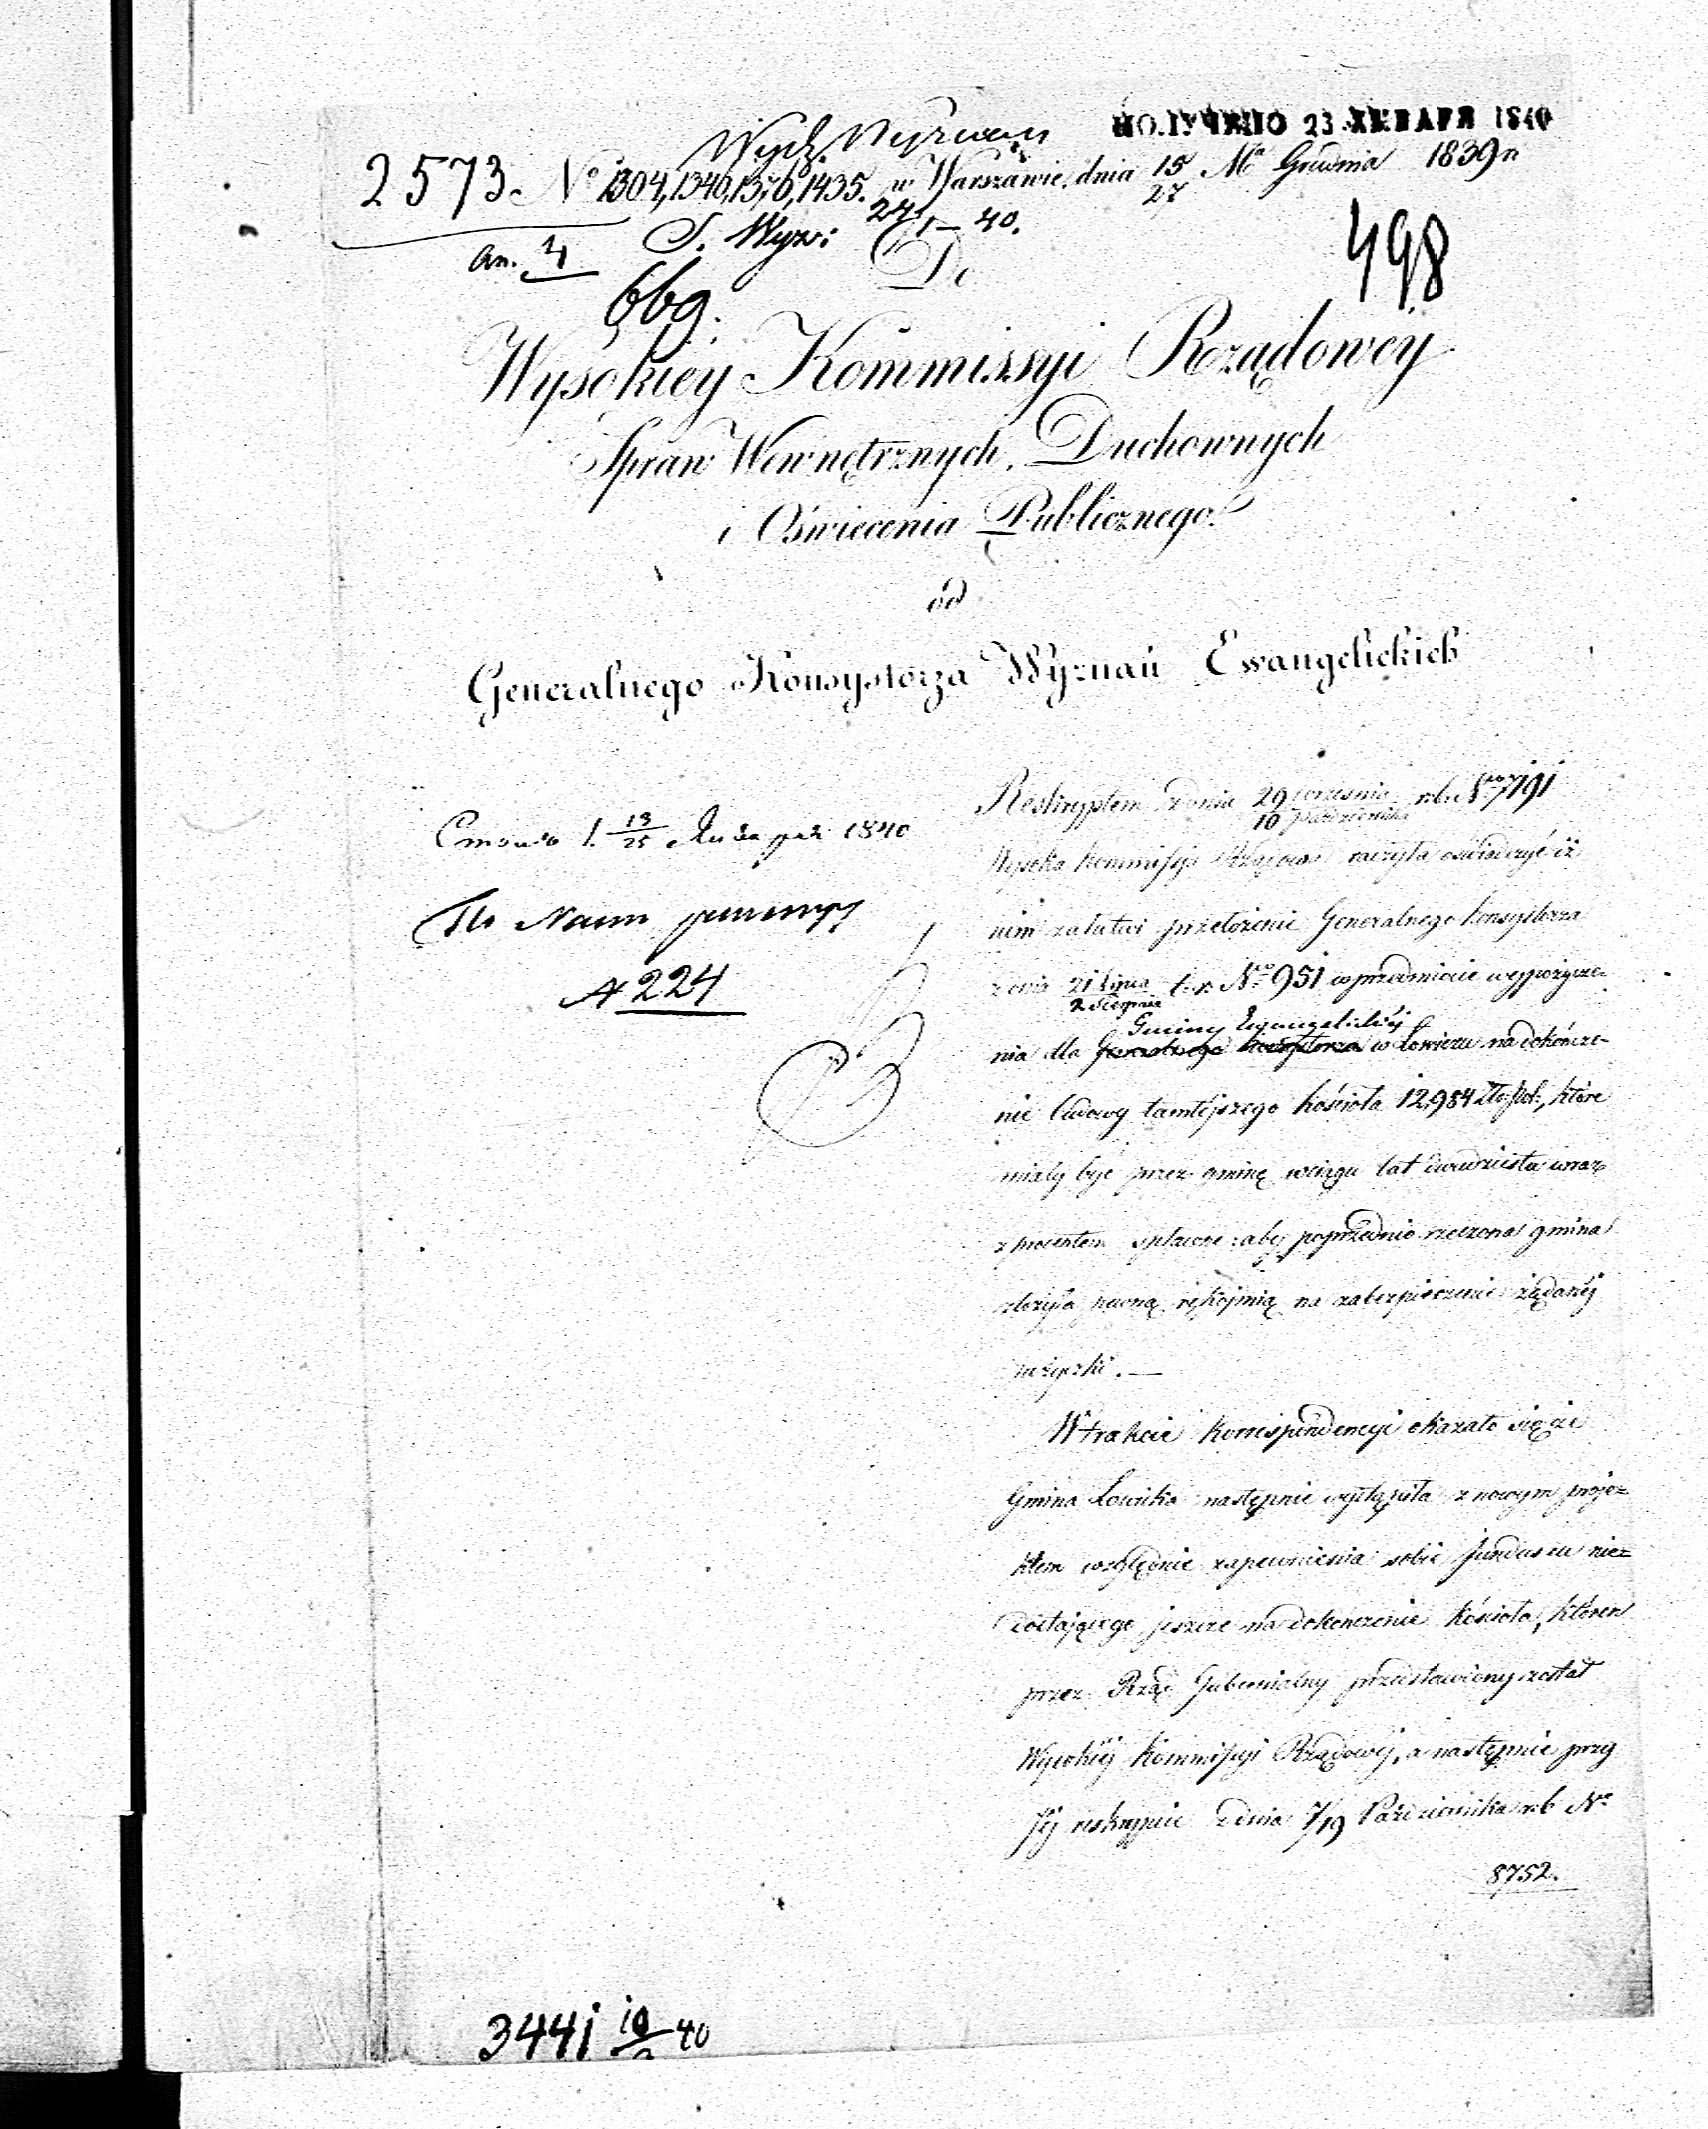 Wydz. Wyznań
ПОЛУЧЕНО 23 ЯНВАРЯ 1840
2573. No 1304, 1340, 1376, 1435. w Warszawie, dnia 15/27 Ma Grudnia 1839 r.
S. Wyzn: 24/1 – 40.
an. 4
Do
498
669.
Wysokiey Kommissyi Rządowey
Spraw Wewnętrznych, Duchownych
i Oświecenia Publicznego
od
Generalnego Konsystorza Wyznań Ewangelickich
13/25 1840
No 224
Reskryptem z dnia 29 września/10 października r.b. No 7191
Wysoka Kommissya Rządowa raczyła oświadczyć iż
nim załatwi przełożenie Generalnego Konsystorza
z dnia 21 Lipca/2 Sierpnia t.r. No 951 w przedmiocie wypożycze-
Gminy Ewangelickiéj
nia dla Generalnego Konsystorza w Łowiczu na dokończe-
nie budowy tamtéjszego kościoła 12,984 Złp. pol:, które
miały być przez gminę w ciągu lat dwudziestu wraz
z procentem spłacone: aby poprzednio rzeczona gmina
złożyła pewną rękojmią na zabezpieczenie żądanéj
pożyczki. —
W trakcie korrespondencyi okazało się że
Gmina Łowicka następnie wystąpiła z nowym proje-
ktem względnie zapewnienia sobie funduszu nie-
dostającego jeszcze na dokończenie kościoła, któren
przez Rząd Gubernialny przedstawiony został
Wysokiéj Kommissyi Rządowéj, a następnie przy
Jéj reskrypcie z dnia 7/19 Października r.b. No
8752.
3441 40